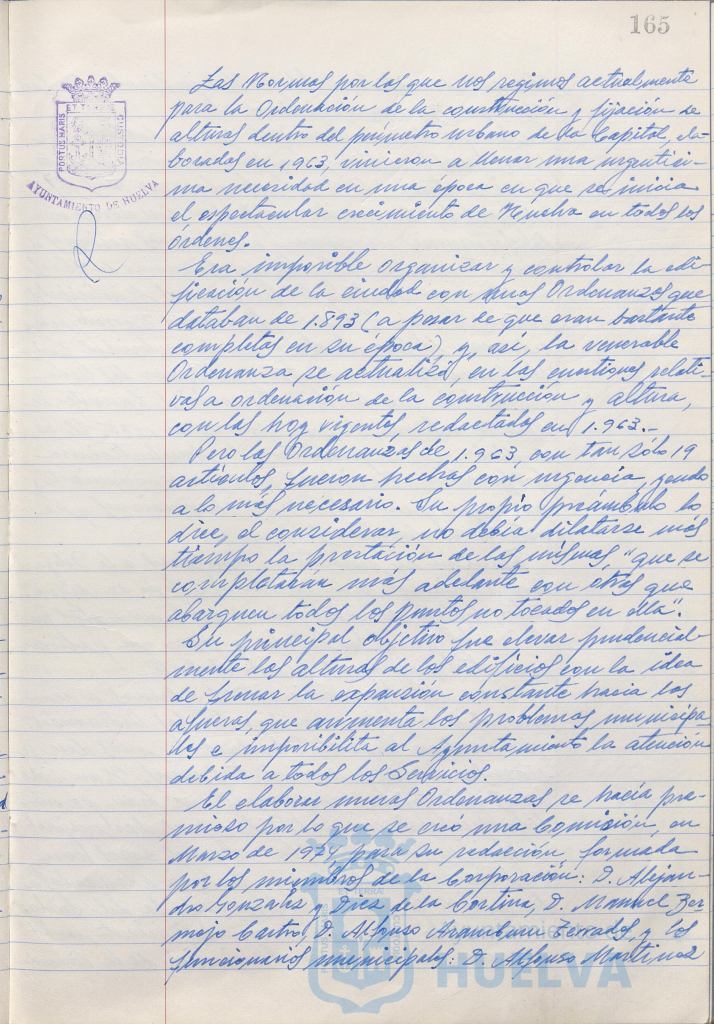 165
PORTUS MARIS
ET TERRÆ
CUSTODIA
AYUNTAMIENTO DE HUELVA
Las Normas por las que nos regimos actualmente
para la Ordenación de la construcción y fijación de
alturas dentro del perímetro urbano de la Capital, ela-
boradas en 1963, vinieron a llenar una urgentísi-
ma necesidad en una época en que se inicia
el espectacular crecimiento de Huelva en todos los
órdenes.
Era imposible organizar y controlar la edi-
ficación de la ciudad con unas Ordenanzas que
databan de 1.893 (a pesar de que eran bastante
completas en su época) y, así, la venerable
Ordenanza se actualizó, en las cuestiones relati-
vas a ordenación de la construcción y altura,
con las hoy vigentes, redactadas en 1.963.-
Pero las Ordenanzas de 1.963, con tan sólo 19
artículos, fueron hechas con urgencia, yendo
a lo más necesario. Su propio preámbulo lo
dice, al considerar, no debía dilatarse más
tiempo la prestación de las mismas "que se
completarán más adelante con otras que
abarquen todos los puntos no tocados en ella".
Su principal objetivo fue elevar prudencial-
mente las alturas de los edificios con la idea
de frenar la expansión constante hacia las
afueras, que aumenta los problemas municipa-
les e imposibilita al Ayuntamiento la atención
debida a todos los Servicios.
El elaborar nuevas Ordenanzas se hacía pre-
mioso por lo que se creó una Comisión, en
Marzo de 1974 para su redacción, formada
por los miembros de la Corporación: D. Alejan-
dro Gonzalez y Diez de la Cortina, D. Manuel Ber-
mejo Castro, D. Alfonso Aramburu Terrades, y los
funcionarios municipales: D. Alfonso Martinez
HUELVA